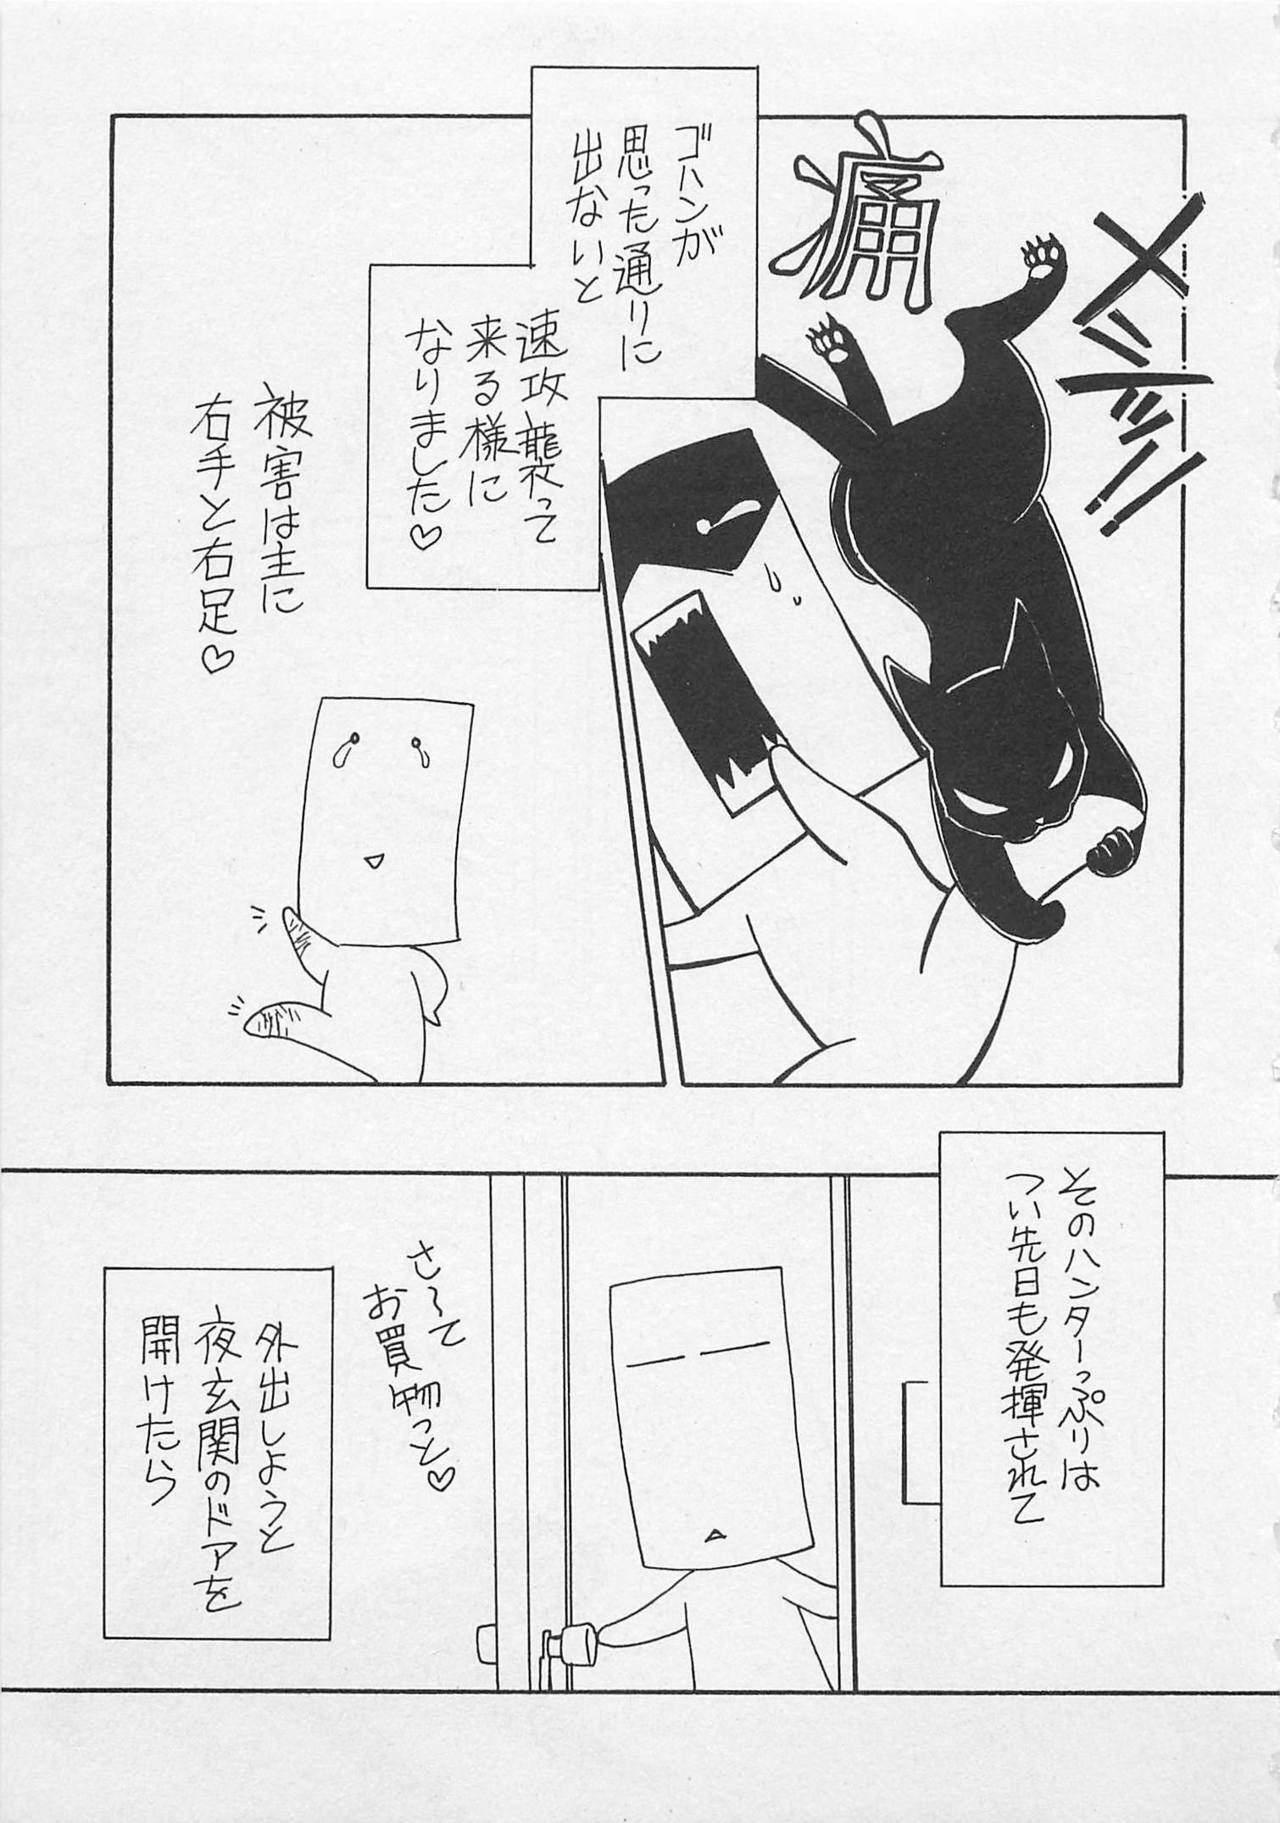 メシャッ!!
痛
ゴハンが
思った通りに
出ないと
速攻襲って
来る様に
なりました♡
被害は主に
右手と右足♡
そのハンターっぷりは
つい先日も発揮されて
さ〜て
お買物っと♡
外出しようと
夜玄関のドアを
開けたら